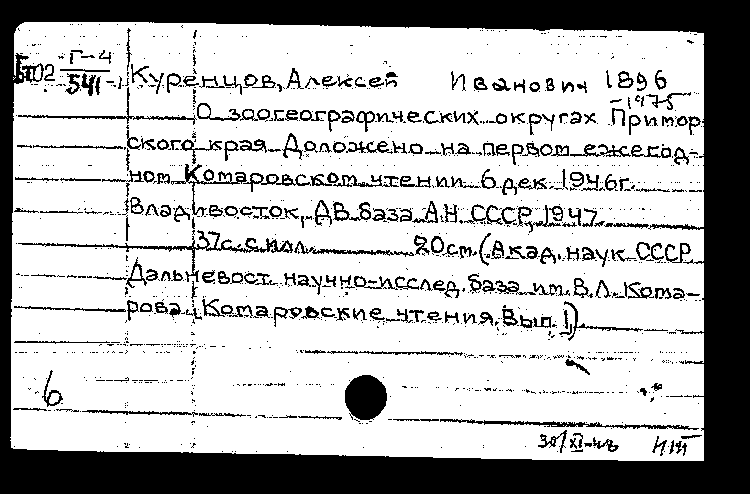 Г-4
541
Куренцов, Алексей Иванович 1896
-1975
О зоогеографических округах Примор-
ского края Доложено на первом ежегод-
ном Комаровском чтении 6 дек. 1946г.
Владивосток, ДВ. база А.Н. СССР, 1947.
37с. с илл. 20см. (Акад. наук СССР
Дальневост. научно-исслед. база им. В.Л. Кома-
рова. Комаровские чтения. Вып. I).
6